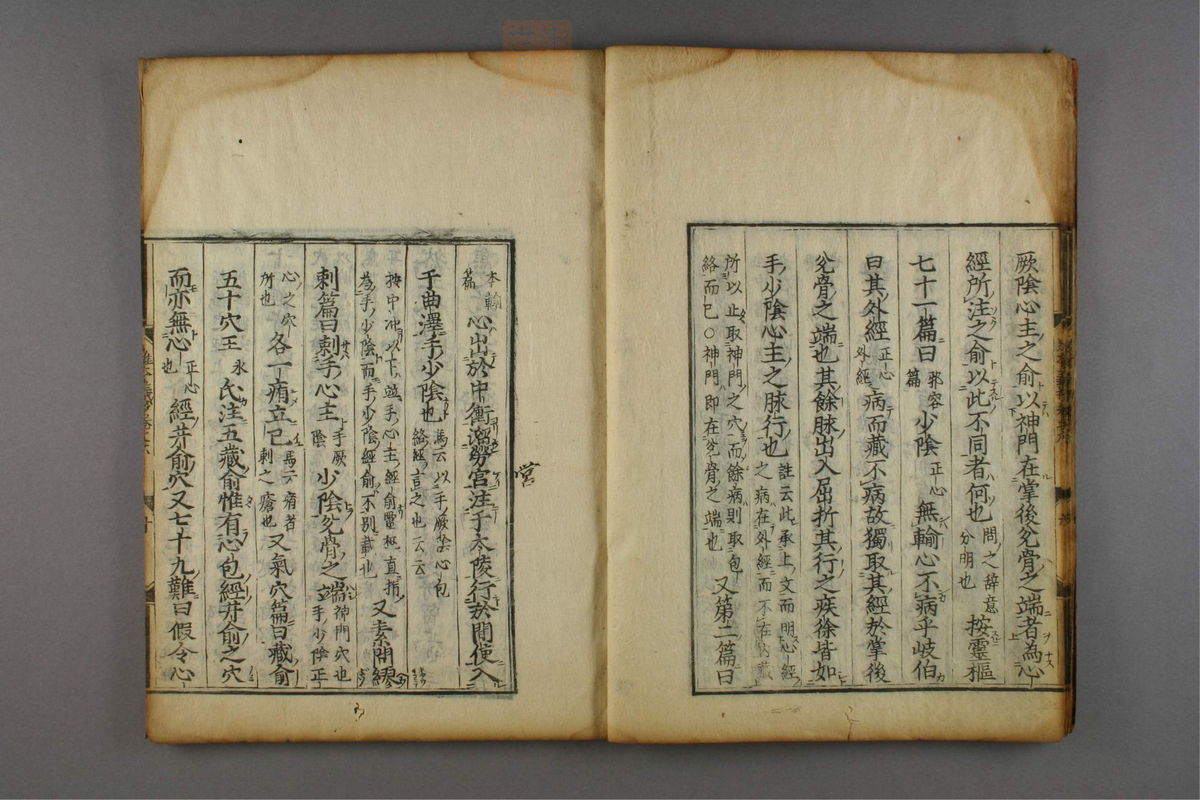 厥陰心主之俞以神門在掌後兊骨之端者為心
經所注之俞以此不同者何也 問之辞意分明也 按靈樞
七十一篇曰 邪客篇 少陰 正心 無輸心不病乎岐伯
曰其外經 正心外經 病而藏不病故獨取其經於掌後
兊骨之端也其餘脉出入屈折其行之疾徐皆如
手少陰心主之脉行也 註云此承上文而明心經之病在外經而不在
所以止取神門之穴而餘病則取包絡而已○神門即在兊骨之端也 又第二篇曰
本輸篇 心出於中衝溜勞宮注于大陵行於間使入
于曲澤手少陰也 馬云以手厥陰心包絡經言之也云云
按中冲以下並手心主經俞靈樞直指為手少陰而手少陰經俞不別載也 又素問繆
刺篇曰刺手心主 手厥陰 少陰兊骨之端 神門穴也手少陰正
心之穴所也 各一痏立已 馬云痏者刺之瘡也 又氣穴篇曰藏俞
五十穴王 永 氏注五藏俞惟有心包經井俞之穴
而亦無心 正心也 經井俞穴又七十九難曰假令心
營